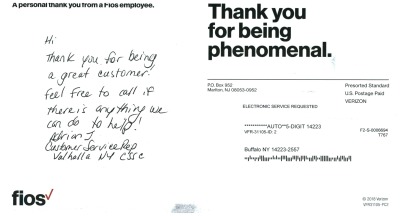 A personal thank you from a Fios employee.
Hi
Thank you for being
a great customer.
Feel free to call if
there is anything we
can do to help!
Adrian J.
Customer Service Rep
Valhalla NY CSSC
fios✓
Thank you
for being
phenomenal.
P.O. Box 952
Marlton, NJ 08053-0952
ELECTRONIC SERVICE REQUESTED
Presorted Standard
U.S. Postage Paid
VERIZON
***********AUTO**5-DIGIT 14223
VFR-31105-ID: 2
F2-S-0088694
T767
Buffalo NY 14223-2557
© 2018 Verizon